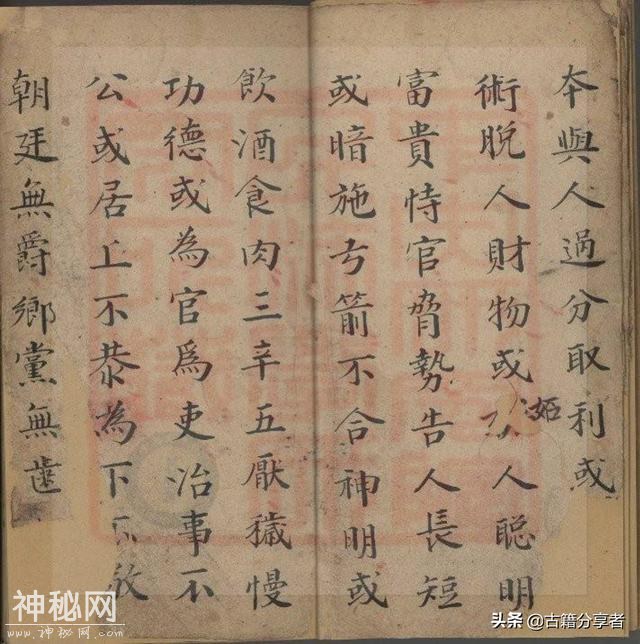 本與人過分取利或
術脫人財物或人聰明
富貴恃官脅勢告人長短
或暗施弓箭不合神明或
飲酒食肉三辛五厭穢慢
功德或為官爲吏治事不
公或居上不恭為下不敬
朝廷無爵鄉黨無齒
神秘网
www.shenmiwang.com
头条 @古籍分享者